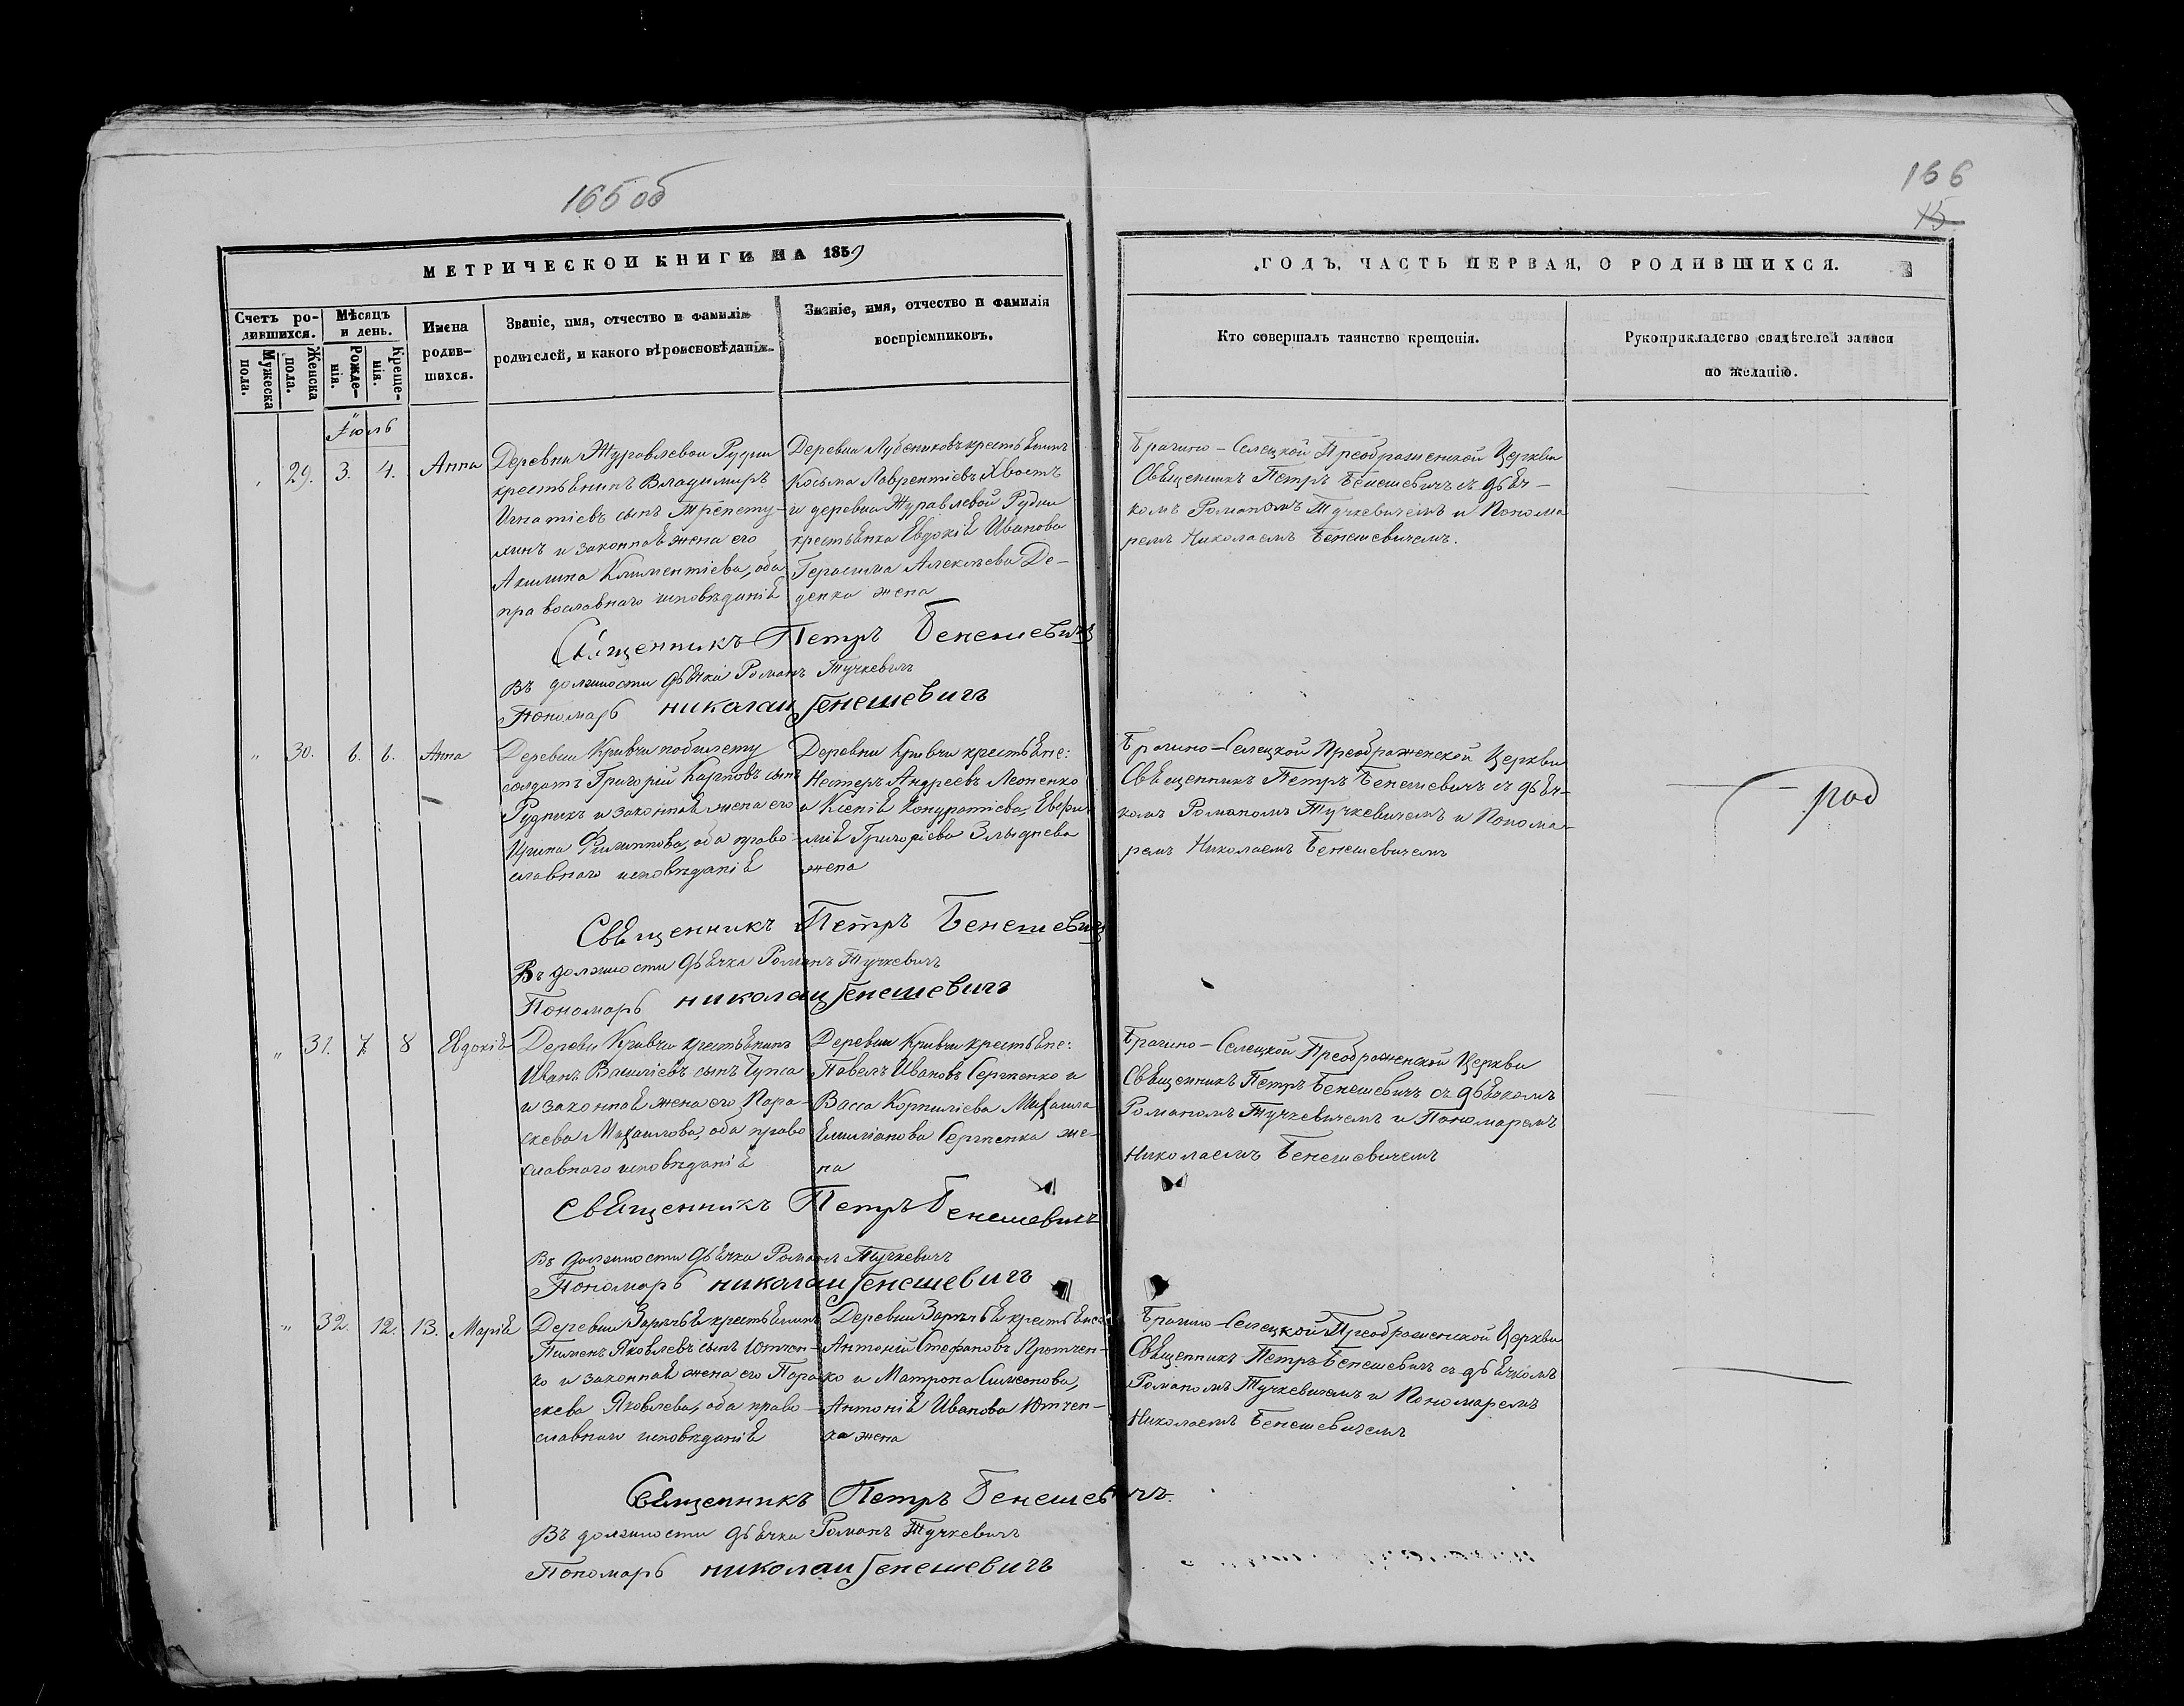 165 об
МЕТРИЧЕСКОЙ КНИГИ НА 1859
Счетъ ро-
дившихся.
Мѣсяцъ
и день.
Имена
родив-
шихся.
Званіе, имя, отчество и фамилія
родителей, и какого вѣроисповѣданія.
Званіе, имя, отчество и фамилія
воспріемниковъ.
Мужеска
пола.
Женска
пола.
Рожде-
нія.
Креще-
нія.
Іюль
29. 3. 4. Анна
Деревни Журавлевой Рудни
крестьянинъ Владимиръ
Игнатіевъ сынъ Трепету-
хинъ и законная жена его
Акилина Климентіева, оба
православнаго исповѣданія
Деревни Лубениковъ крестьянинъ
Косьма Лаврентіевъ Хвостъ
и деревни Журавлевой Рудни
крестьянка Евдокія Иванова
Герасима Алексѣева Де-
денка жена
Священникъ Петръ Бенешевичъ
Въ должности дьячка Романъ Тучкевичъ
Пономарь Николай Бенешевичъ
" 30. 6. 6. Анна
Деревни Кривчи по билету
солдатъ Григорій Карповъ сынъ
Рудникъ и законная жена его
Ирина Филиппова, оба право-
славнаго исповѣданія
Деревни Кривчи крестьяне:
Несторъ Андреевъ Леоненко
и Ксенія Кондратіева, Евфи-
мія Григоріева Злыднева
жена
Священникъ Петръ Бенешевичъ
Въ должности дьячка Романъ Тучкевичъ
Пономарь Николай Бенешевичъ
" 31. 7. 8 Евдокія
Деревни Кривчи крестьянинъ
Иванъ Василіевъ сынъ
и законная жена его Пара-
скева Михаилова, оба право
славнаго исповѣданія
Деревни Кривчи крестьяне:
Павелъ Ивановъ Сергиенко и
Васса Корнилієва Михаила
Емиліанова Сергиенка же-
на
Священникъ Петръ Бенешевичъ
Въ должности дьячка Романъ Тучкевичъ
Пономарь Николай Бенешевичъ
" 32. 12. 13. Марія
Деревни Зарѣчья крестьянинъ
Пименъ Яковлевъ сынъ Ютчен-
ко и законная жена его Пара
скева Яковлева, оба право-
славнаго исповѣданія
Деревни Зарѣчья крестьяне:
Антоній Стефановъ Протчен-
ко и Матрона Симеонова,
Антонія Иванова Ютчен-
ка жена
Священникъ Петръ Бенешевичъ
Въ должности дьячка Романъ Тучкевичъ
Пономарь Николай Бенешевичъ
166
15
ГОДЪ, ЧАСТЬ ПЕРВАЯ, О РОДИВШИХСЯ.
Кто совершалъ таинство крещенія.
Рукоприкладство свидѣтелей записи
по желанію.
Брагино-Селецкой Преображенской Церкви
Священникъ Петръ Бенешевичъ съ дьяч-
комъ Романомъ Тучкевичемъ и Понома
ремъ Николаемъ Бенешевичемъ.
Брагино-Селецкой Преображенской Церкви
Священникъ Петръ Бенешевичъ съ дьяч-
комъ Романомъ Тучкевичемъ и Понома-
ремъ Николаемъ Бенешевичемъ
Брагино-Селецкой Преображенской Церкви
Священникъ Петръ Бенешевичъ съ дьячкомъ
Романомъ Тучкевичемъ и Пономаремъ
Николаемъ Бенешевичемъ
Брагино-Селецкой Преображенской Церкви
Священникъ Петръ Бенешевичъ съ дьячкомъ
Романомъ Тучкевичемъ и Пономаремъ
Николаемъ Бенешевичемъ